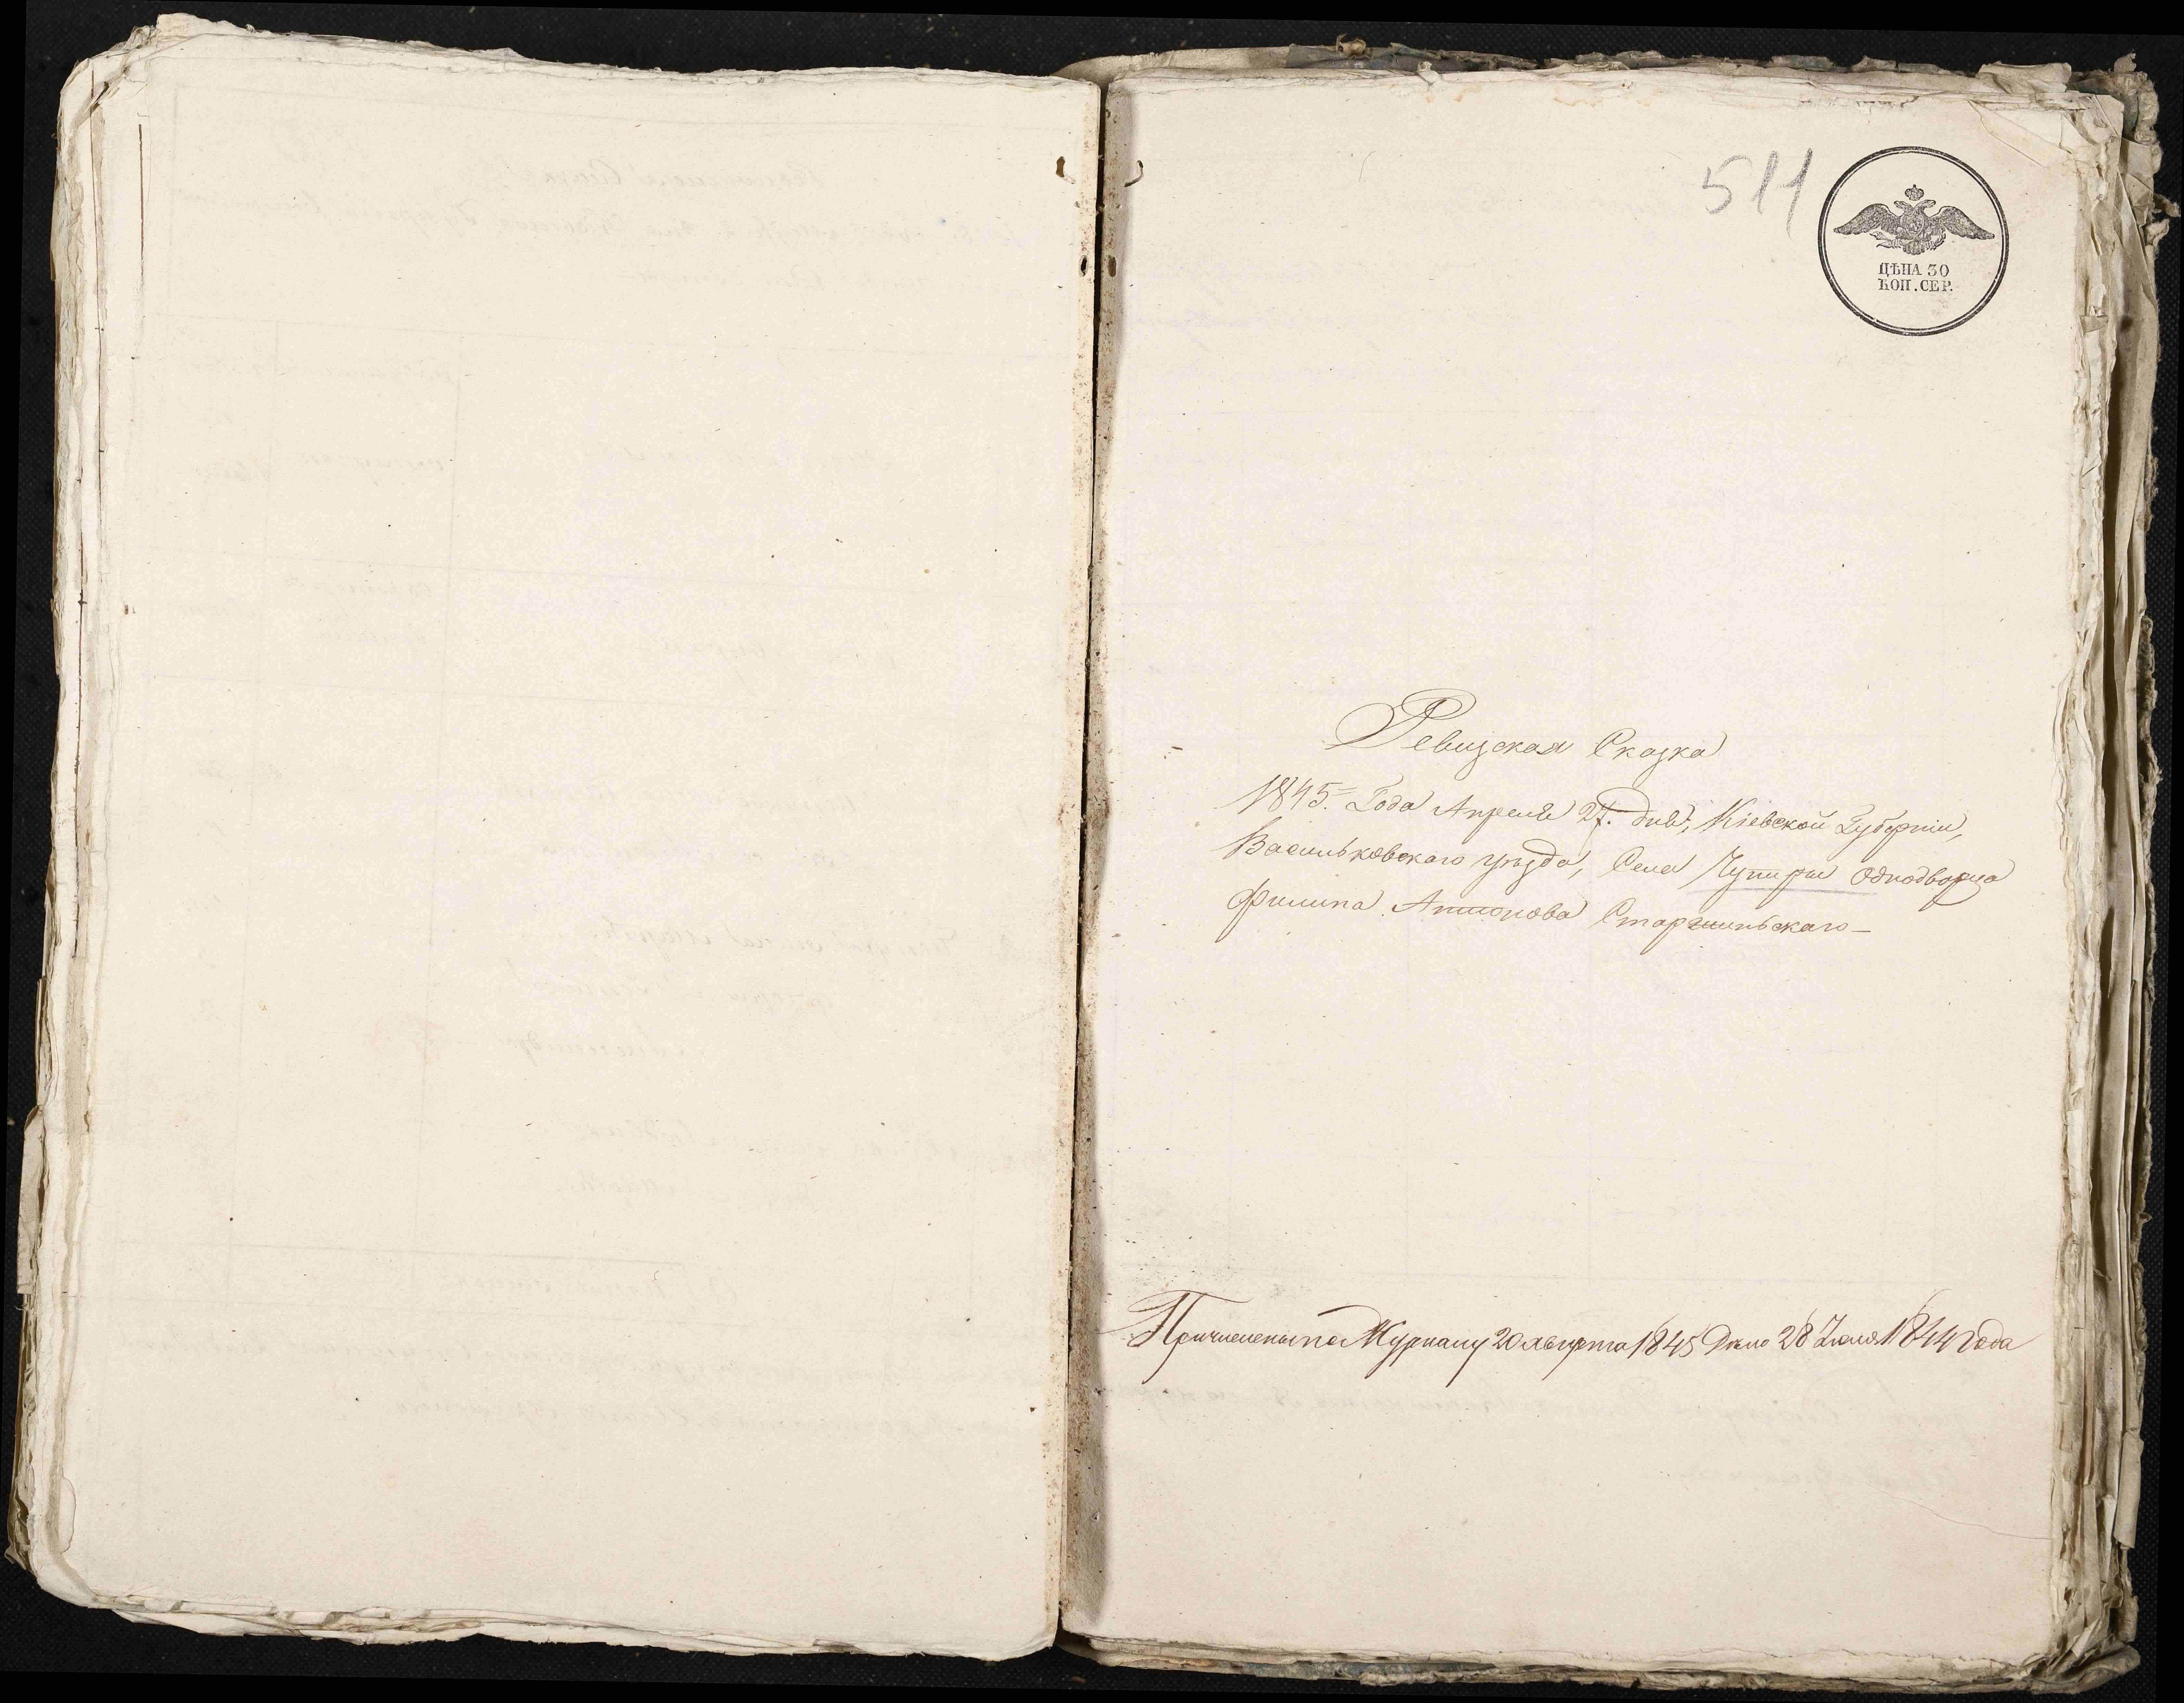 511
ЦѢНА 30
КОП. СЕР.
Ревизская Сказка
1845. Года Апреля 27. дня, Кіевской Губерніи,
Васильковскаго уѣзда, Села Чупиры Однодворца
Филипа Антонова
Причислены по Журналу 20 августа 1845 28 Іюля 1844 года